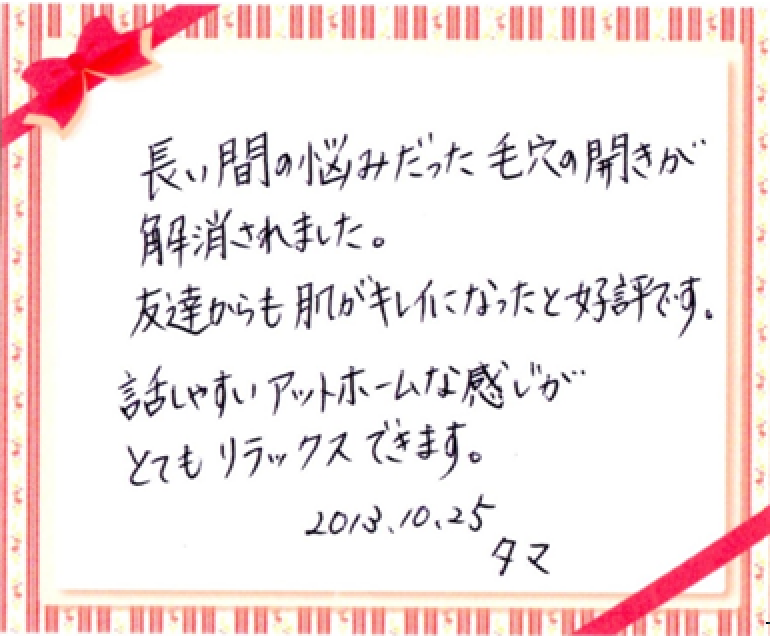 長い間の悩みだった毛穴の開きが
解消されました。
友達からも肌がキレイになったと好評です。
話しやすいアットホームな感じが
とてもリラックスできます。
2013.10.25
タマ